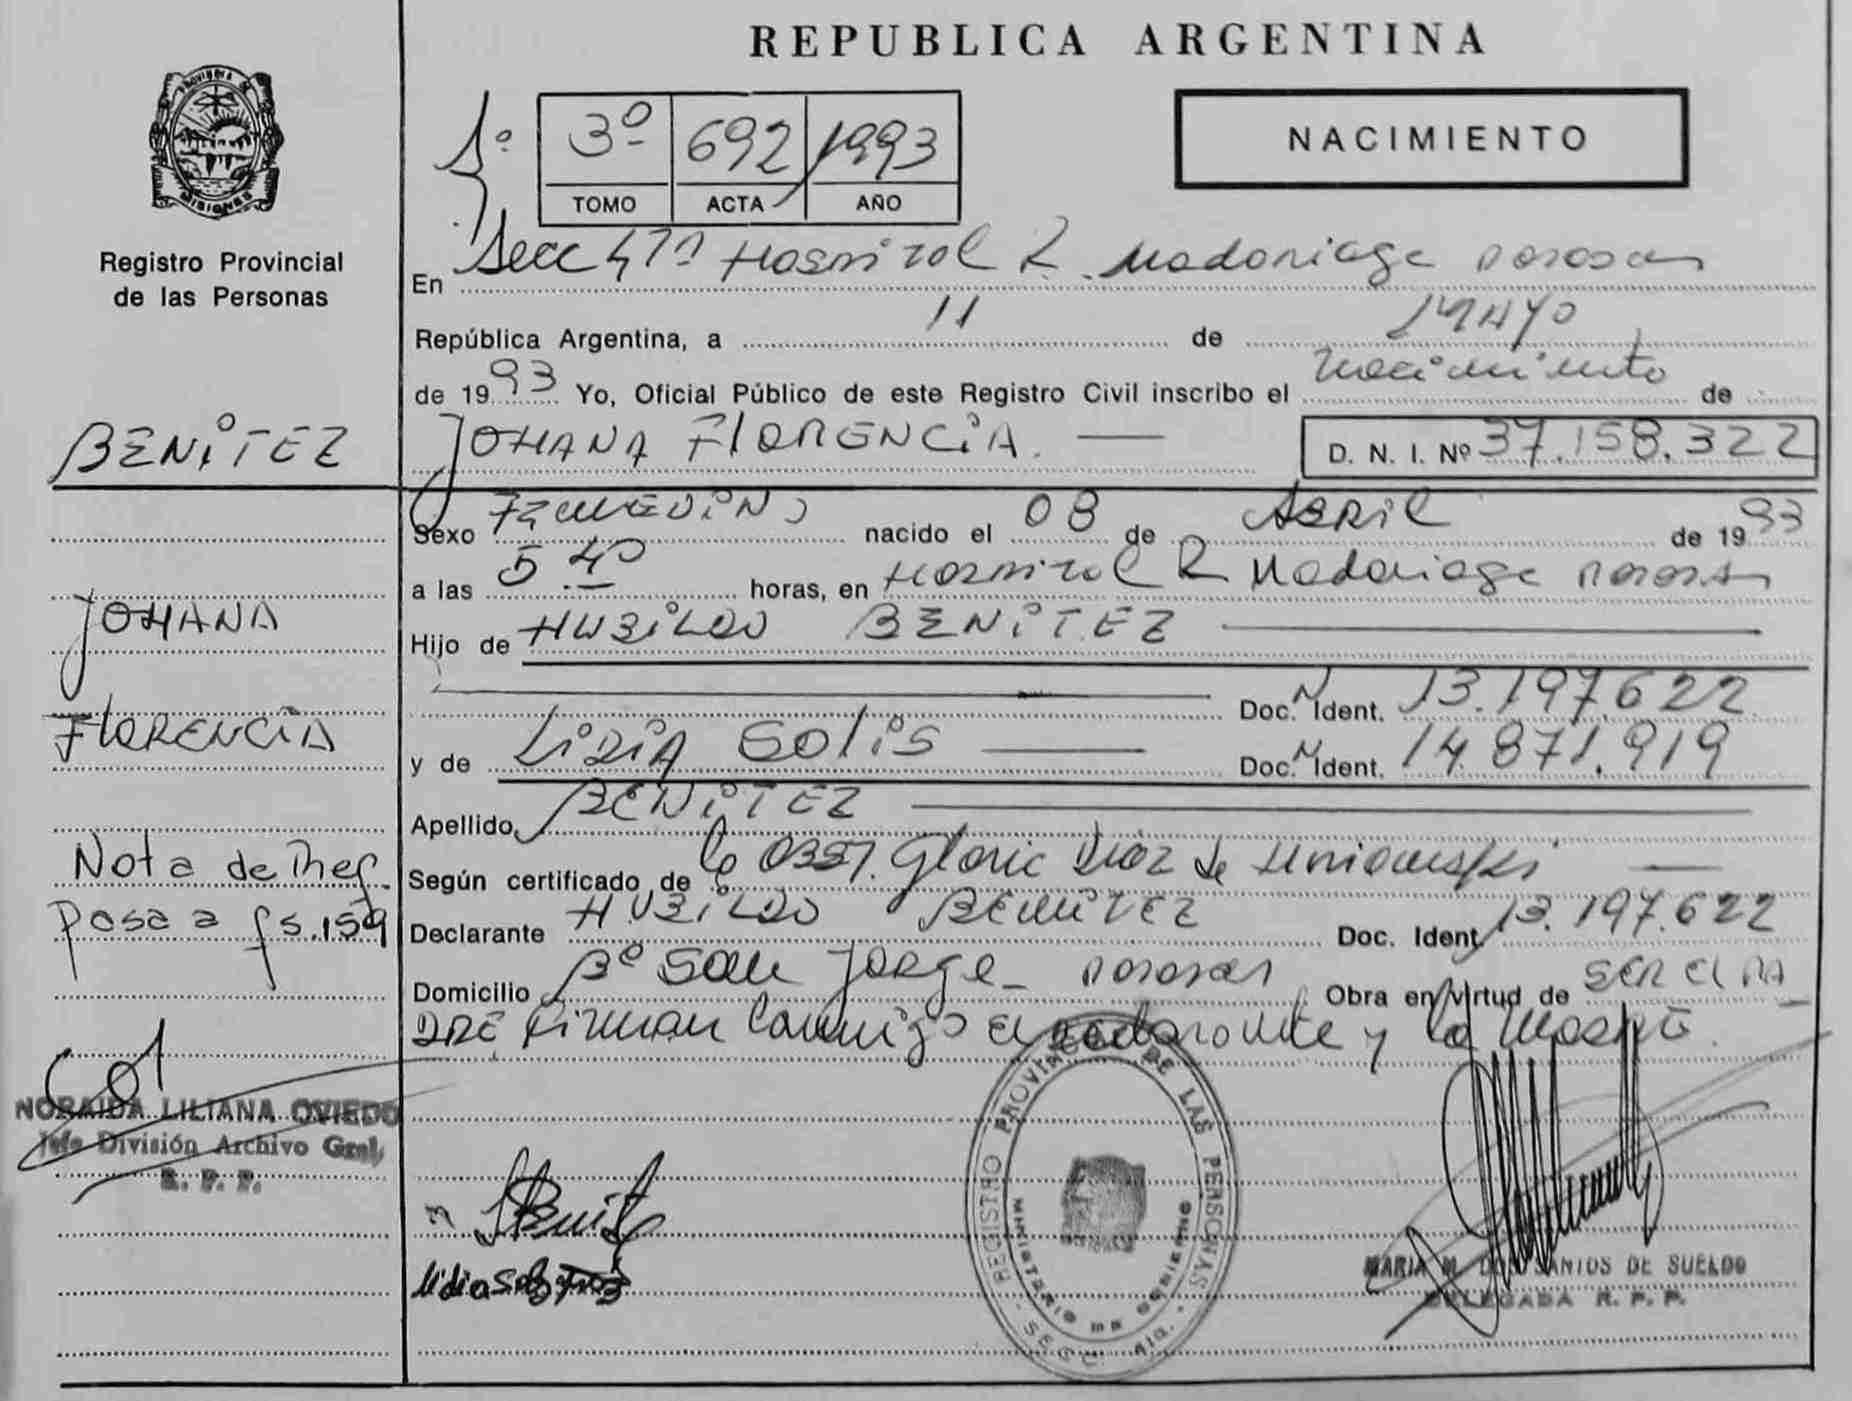 REPUBLICA ARGENTINA
PROVINCIA
MISIONES
Registro Provincial
de las Personas
1º
3º 692 1993
TOMO ACTA AÑO
NACIMIENTO
En Secc 47ª Hospital R. Madariaga Posadas
República Argentina, a 11 de MAYO
de 1993 Yo, Oficial Público de este Registro Civil inscribo el nacimiento de
BENITEZ
JOHANA FLORENCIA. D. N. I. Nº 37.158.322
Sexo FEMENINO nacido el 08 de ABRIL de 1993
a las 5.40 horas, en Hospital R Madariaga Posadas
JOHANA
Hijo de HUBILDO BENITEZ
Doc. N Ident. 13.197.622
FLORENCIA
y de LIDIA SOLIS Doc. N Ident. 14.871.919
Apellido BENITEZ
Según certificado de Gloria Diaz de
Nota de Ref.
Declarante HUBILDO BENITEZ Doc. Ident. 13.197.622
Pasa a fs. 159
Domicilio Bº San Jorge_ Posadas Obra en virtud de SER EL PA
DRE Firman Conmigo el declarante y la Madre.
NORAIDA LILIANA OVIEDO
Jefe División Archivo Gral.
R. P. P.
HBenitez
lidia Solis
REGISTRO PROVINCIAL DE LAS PERSONAS
MINISTERIO DE GOBIERNO
SECC. 41a.
MARIA M. DOS SANTOS DE SUELDO
DELEGADA R. P. P.